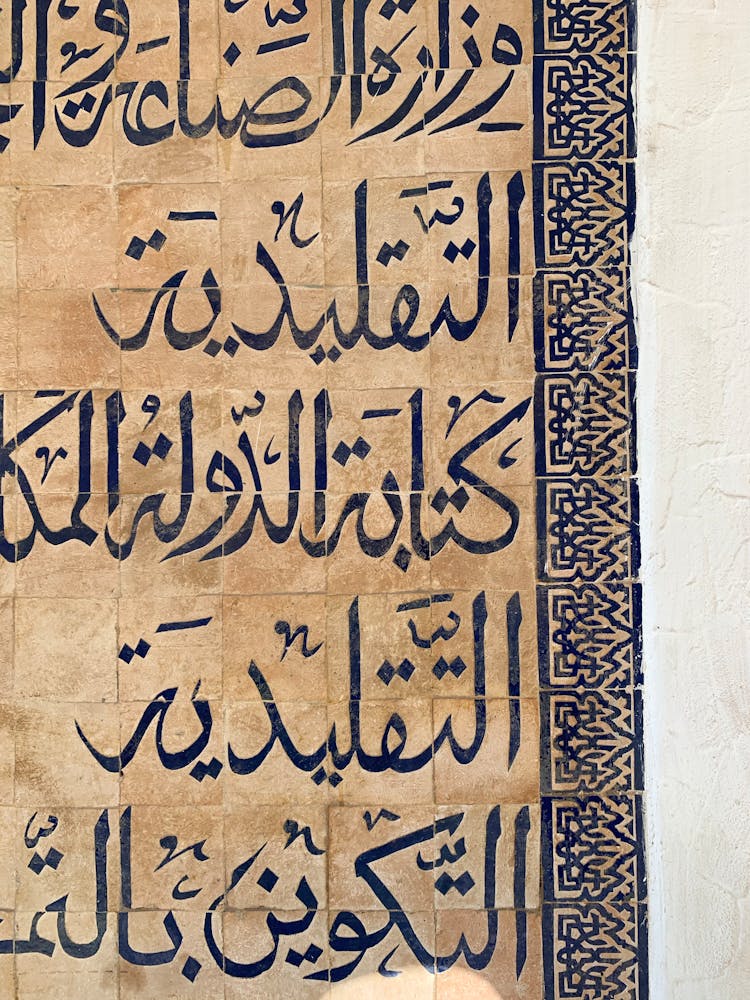 وزارة الصناعة و
التقليدية
كتابة الدولة
التقليدية
التكوين